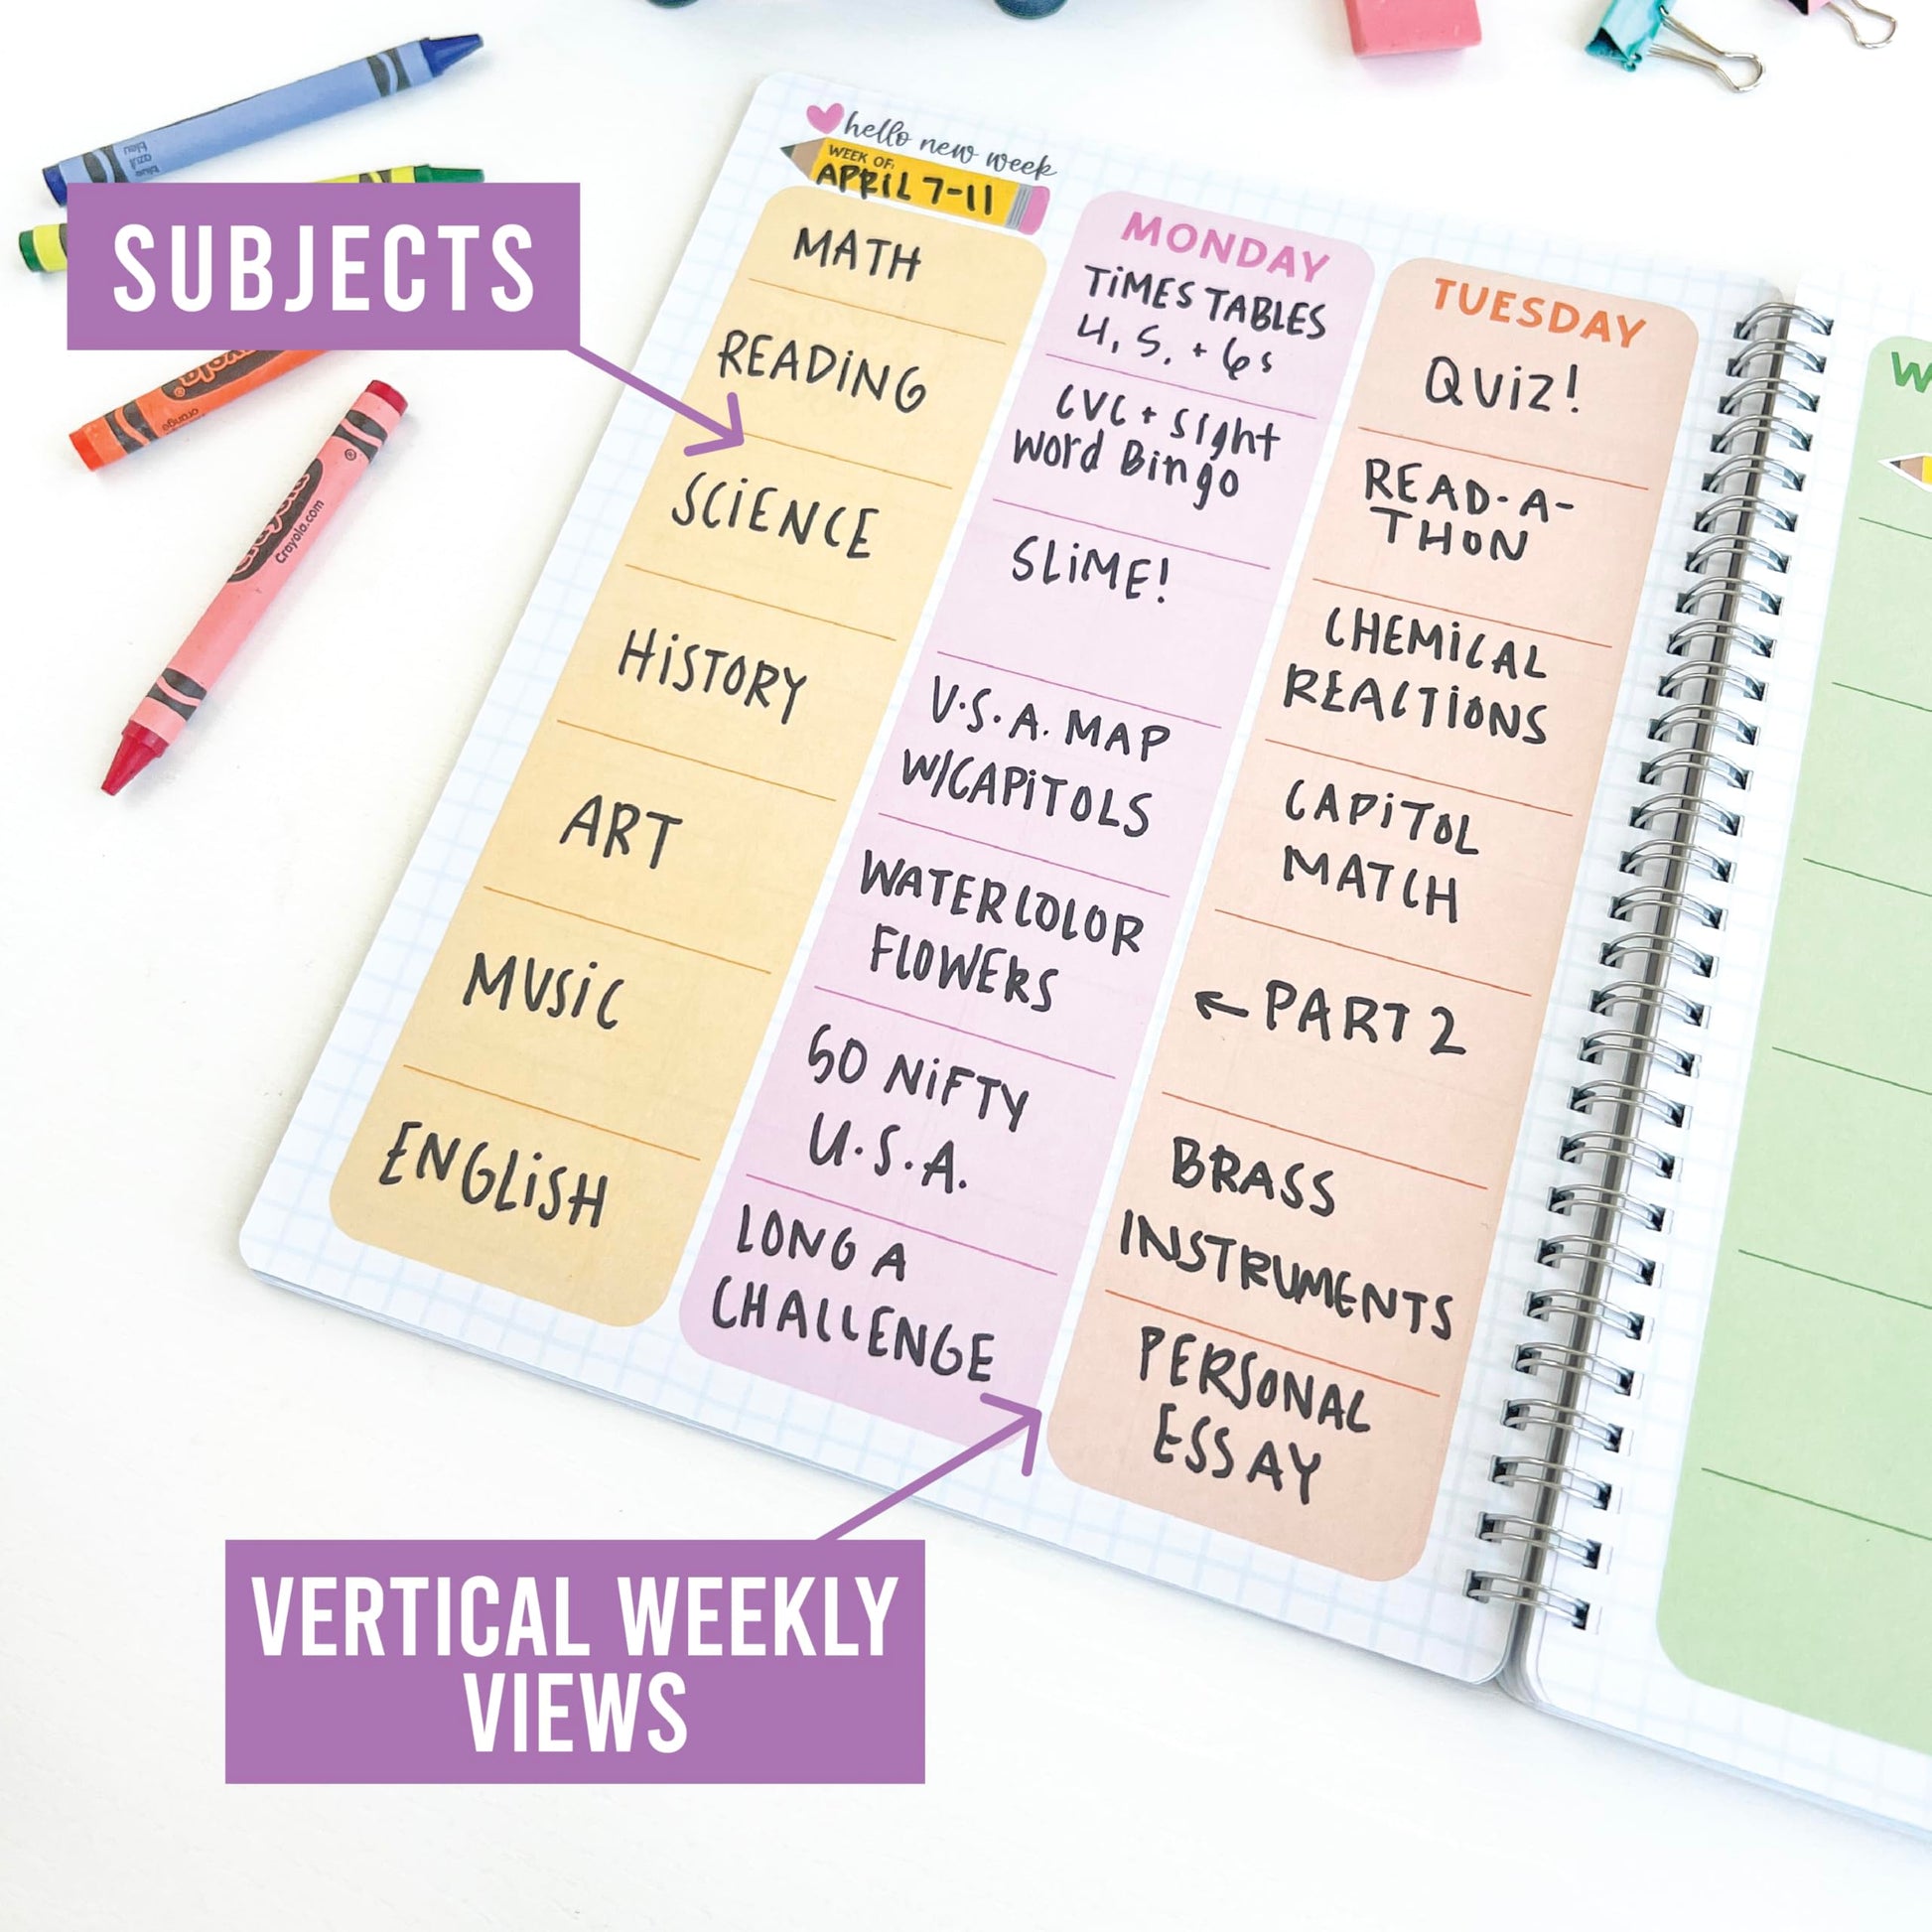 SUBJECTS
VERTICAL WEEKLY
VIEWS
hello new week
WEEK OF:
APRIL 7-11
MATH
READING
SCIENCE
HISTORY
ART
MUSIC
ENGLISH
MONDAY
TIMES TABLES
4, 5, + 6s
CVC + Sight
Word Bingo
SLIME!
U.S.A. MAP
W/CAPITOLS
WATERCOLOR
FLOWERS
50 NIFTY
U.S.A.
LONG A
CHALLENGE
TUESDAY
QUIZ!
READ-A-
THON
CHEMICAL
REACTIONS
CAPITOL
MATCH
← PART 2
BRASS
INSTRUMENTS
PERSONAL
ESSAY
W
bleu
azul
blue
orange
Crayola
Crayola.com